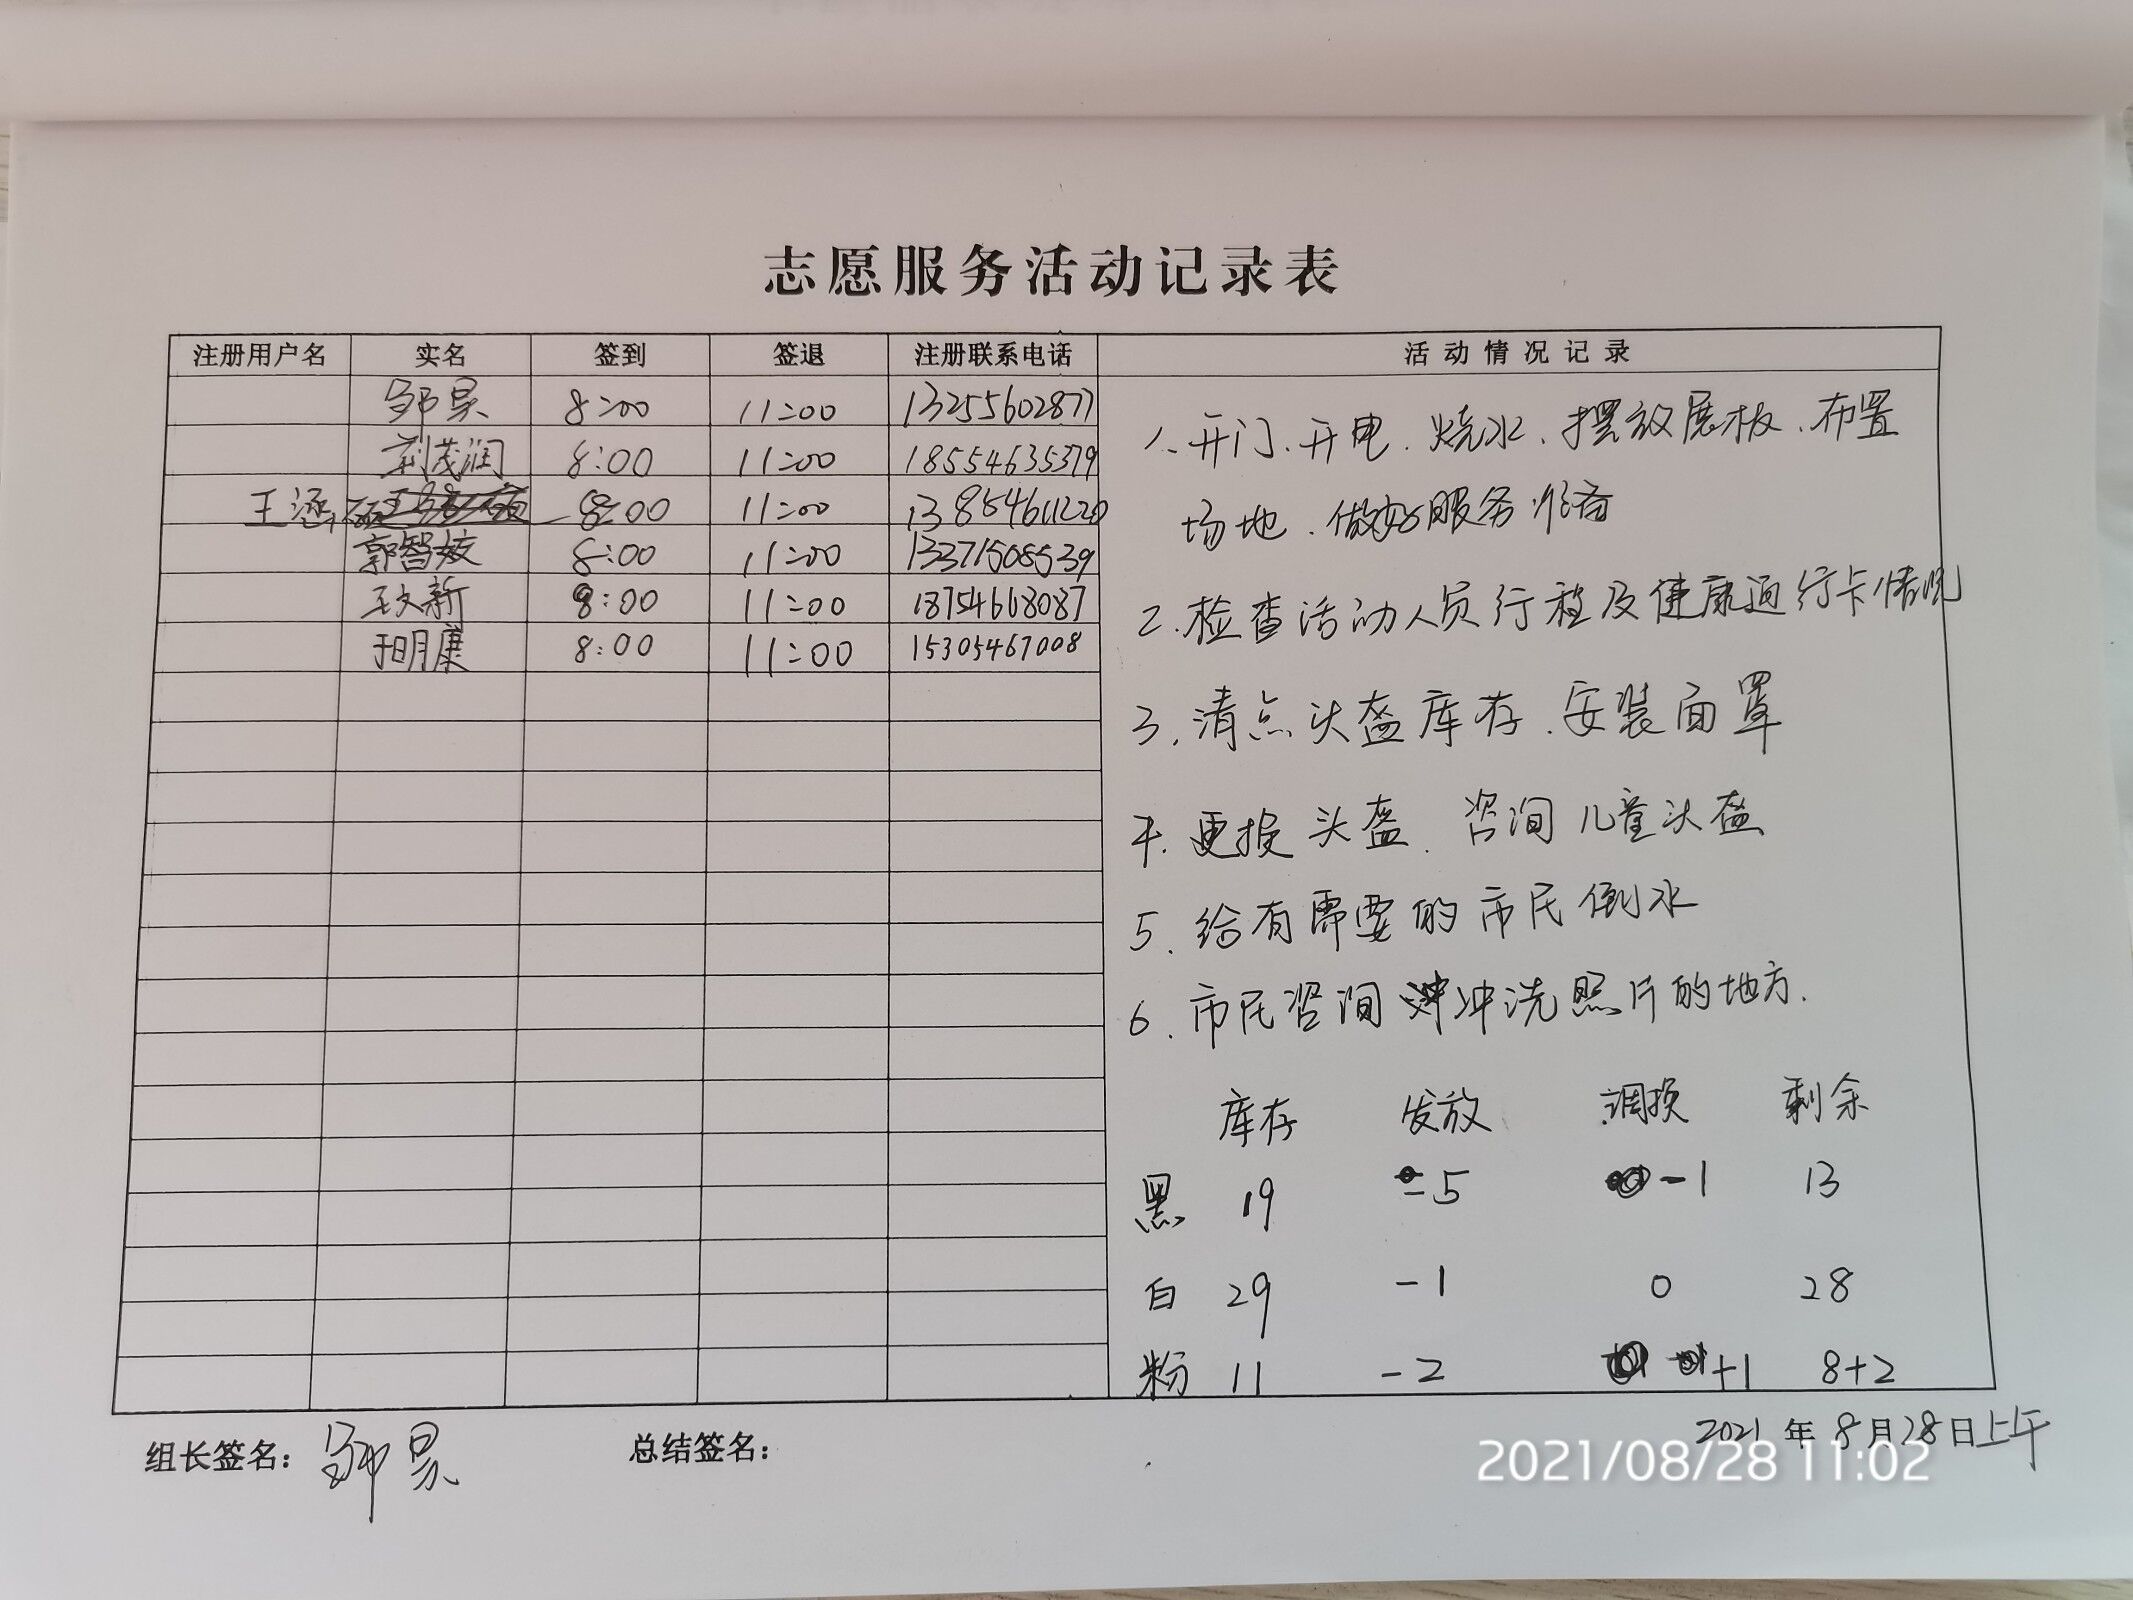 志愿服务活动记录表
注册用户名 实名 签到 签退 注册联系电话 活动情况记录
邹昊 8:00 11:00 13255602877
刘茂润 8:00 11:00 18554635379
王涵硕 8:00 11:00 13854611220
郭智姣 8:00 11:00 13371508539
王文新 8:00 11:00 18754668087
于明康 8:00 11:00 15305467008
1、开门、开电、烧水、摆放展板、布置
场地、做好服务准备
2、检查活动人员行程及健康通行卡情况
3、清点头盔库存、安装面罩
4、更换头盔、咨询儿童头盔
5、给有需要的市民倒水
6、市民咨询冲洗照片的地方.
库存 发放 调换 剩余
黑 19 -5 -1 13
白 29 -1 0 28
粉 11 -2 +1 8+2
组长签名: 邹昊 总结签名: 2021年8月28日上午
2021/08/28 11:02